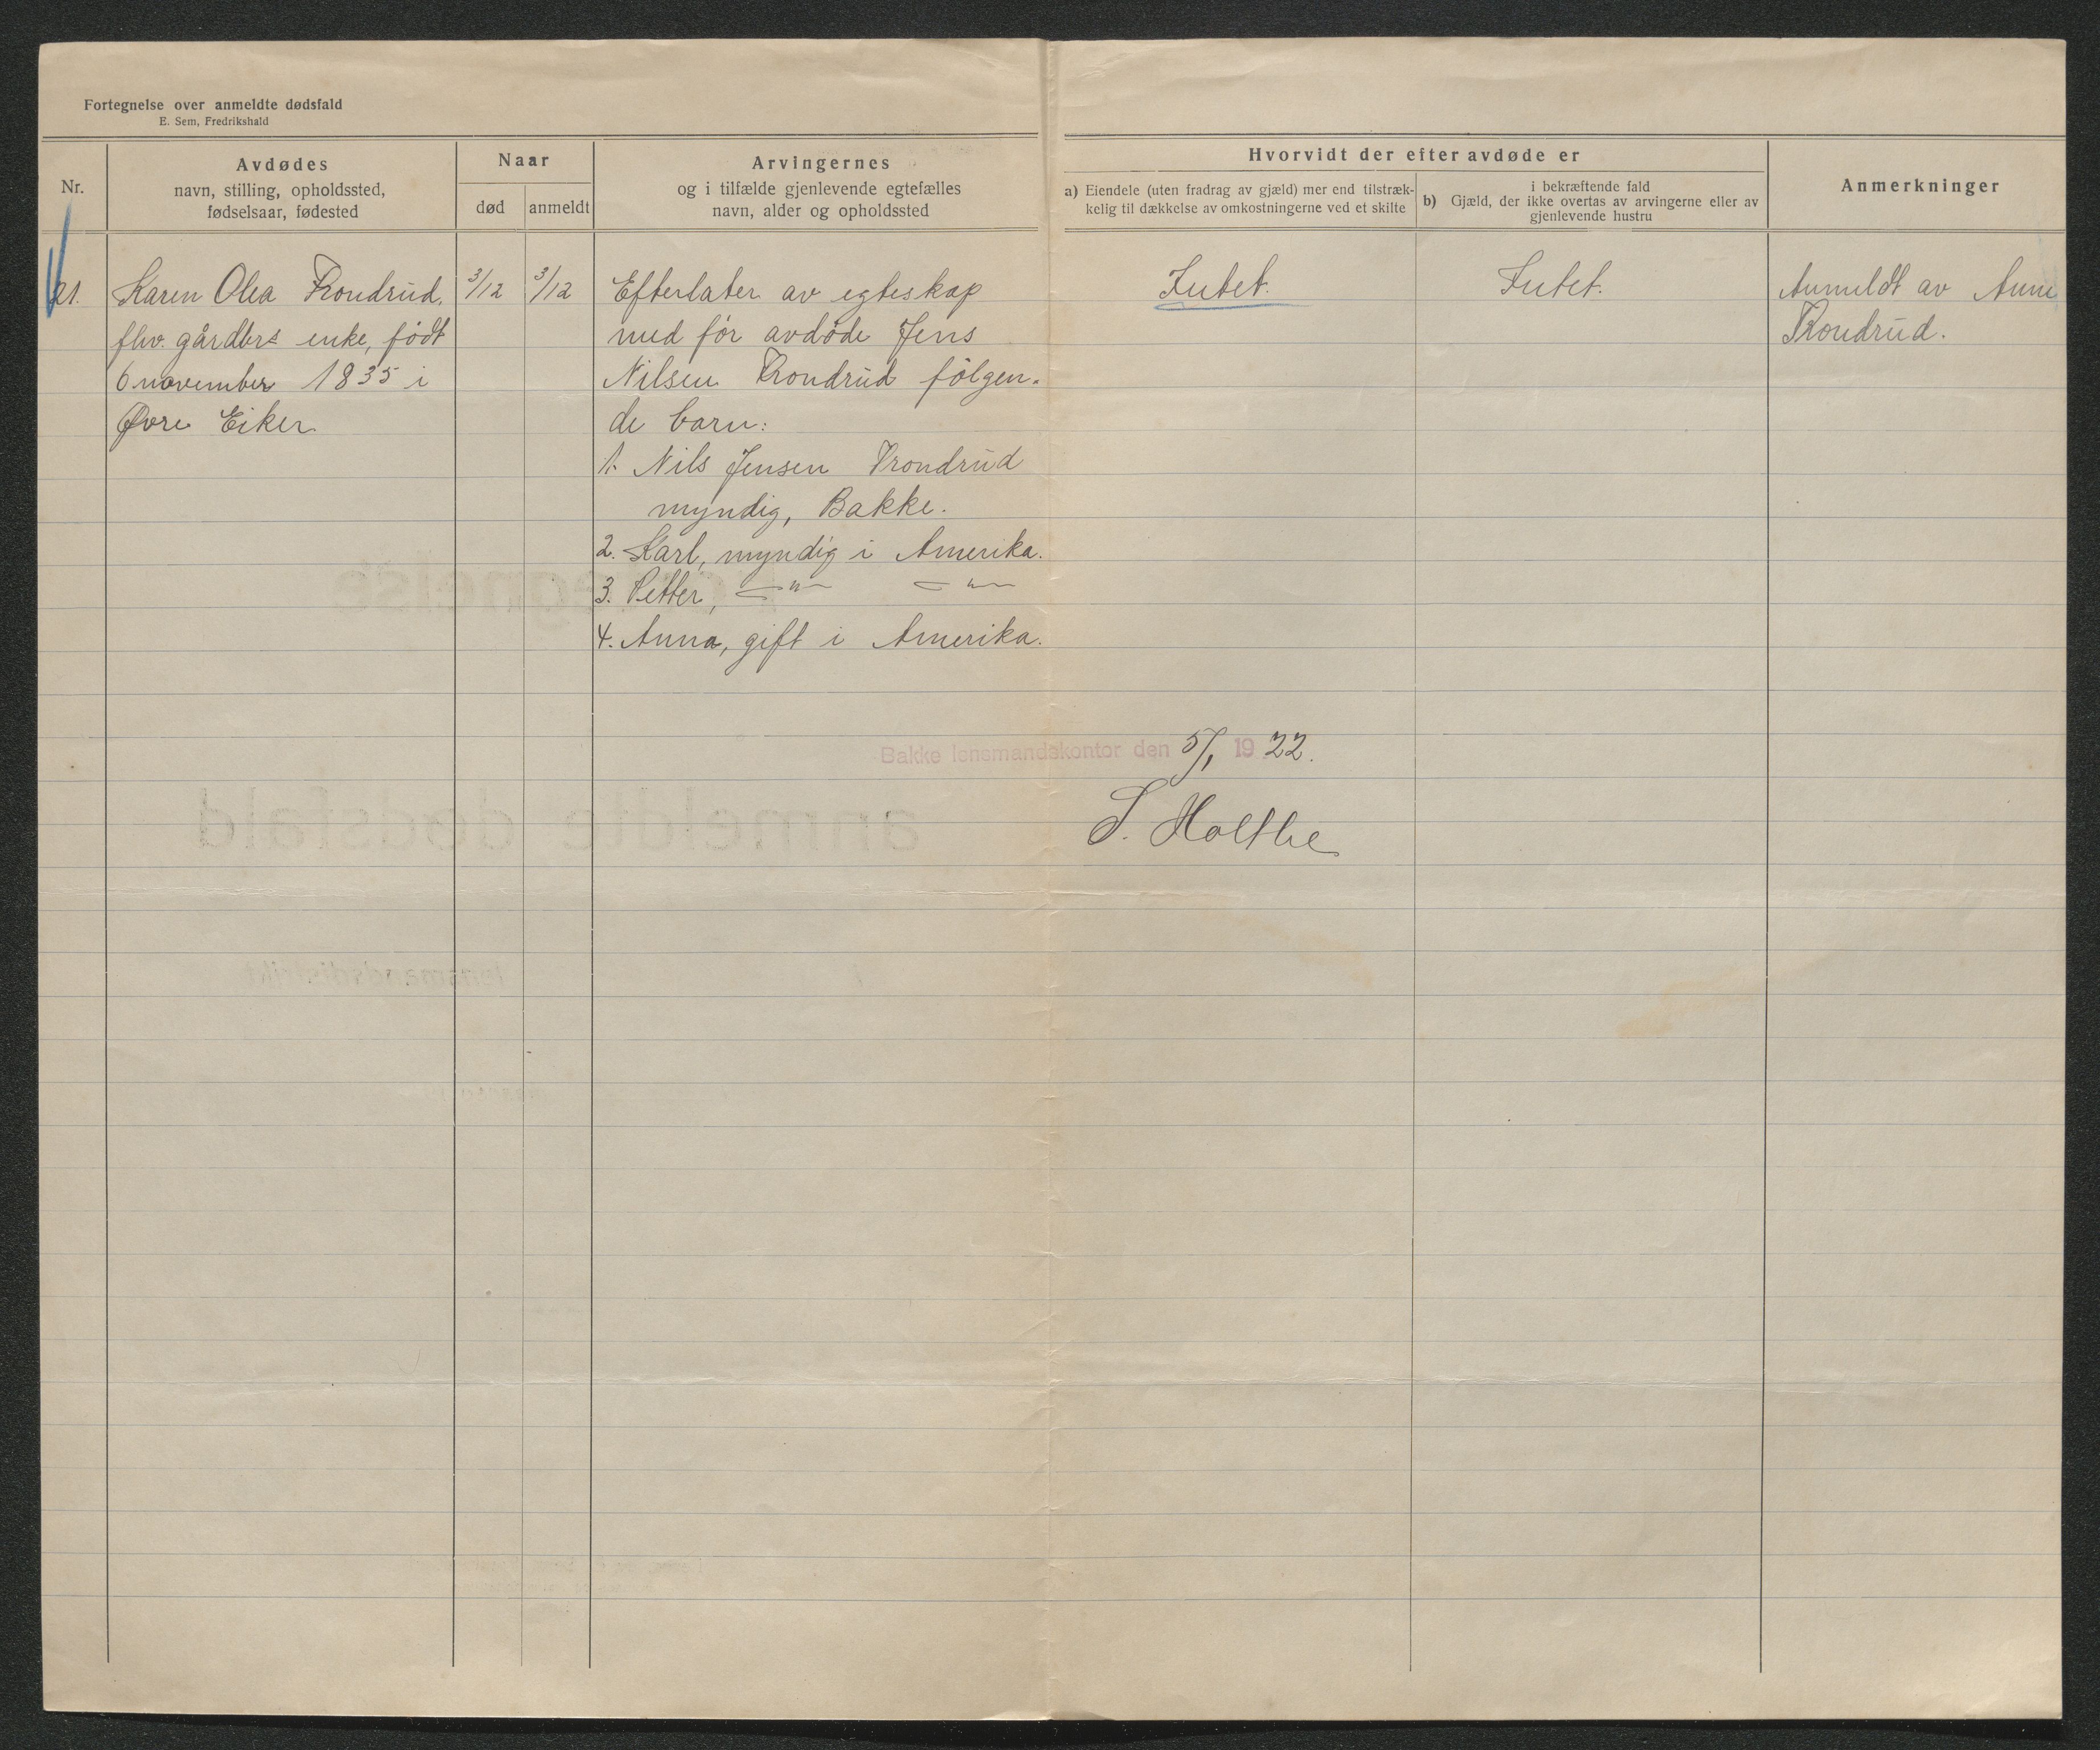 Fortegnelse over anmeldte dødsfald
E. Sem, Fredrikshald
Nr.
Avdødes
navn, stilling, opholdssted,
fødselsaar, fødested
Naar
død
anmeldt
Arvingernes
og i tilfælde gjenlevende egtefælles
navn, alder og opholdssted
Hvorvidt der efter avdøde er
a) Eiendele (uten fradrag av gjæld) mer end tilstræk-
kelig til dækkelse av omkostningerne ved et skifte
i bekræftende fald
b) Gjæld, der ikke overtas av arvingerne eller av
gjenlevende hustru
Anmerkninger
21.
Karen Olea Trondrud,
fhv. gårdbrs enke, født
6 november 1835 i
Øvre Eiker.
3/12
3/12
Efterlater av egteskap
med før avdøde Jens
Nilsen Trondrud følgen-
de barn:
1. Nils Jensen Trondrud
myndig, Bakke.
2. Karl, myndig i Amerika.
3. Petter, —"— —"—
4. Anna, gift i Amerika.
Intet.
Intet.
Anmeldt av Anne
Trondrud.
Bakke lensmandskontor den 5/1 1922.
S. Holthe
anmeldte dødsfald
lensmandsdistrikt